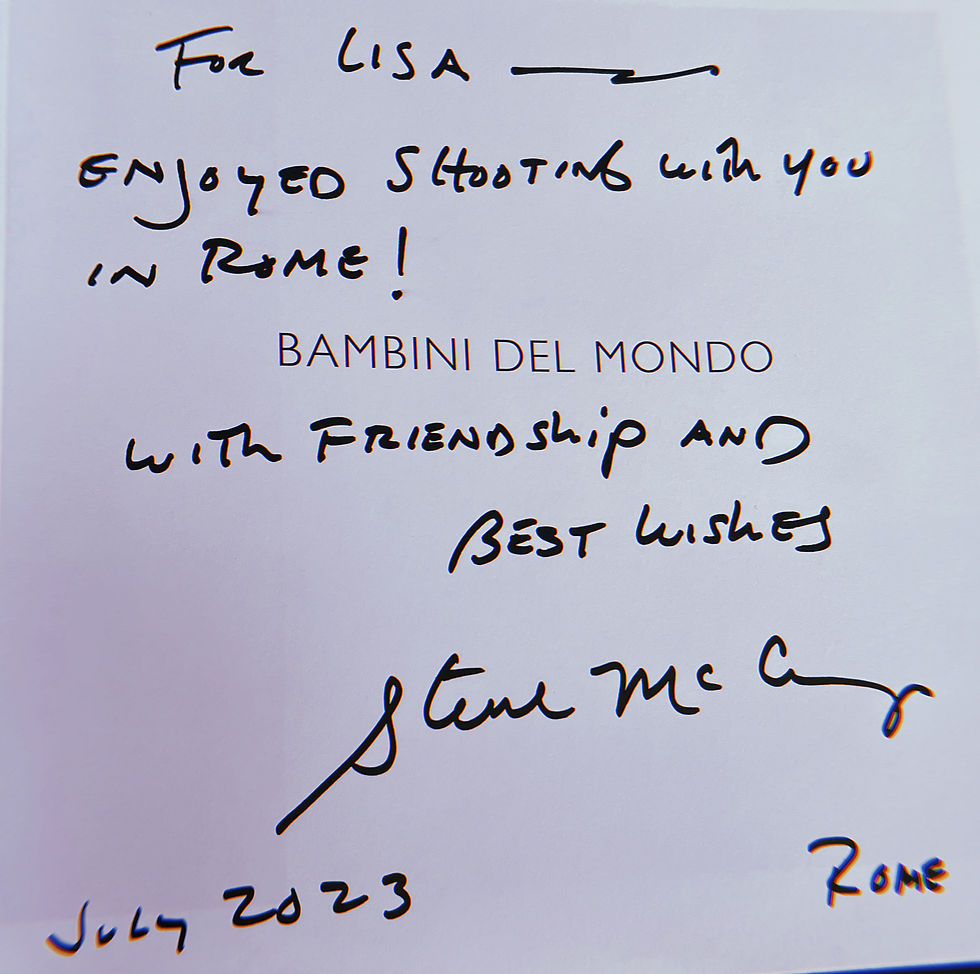 FOR LISA
ENJOYED SHOOTING with you
IN ROME!
BAMBINI DEL MONDO
WITH FRIENDShip AND
BEST WISHES
Steve McCurry
July 2023
ROME